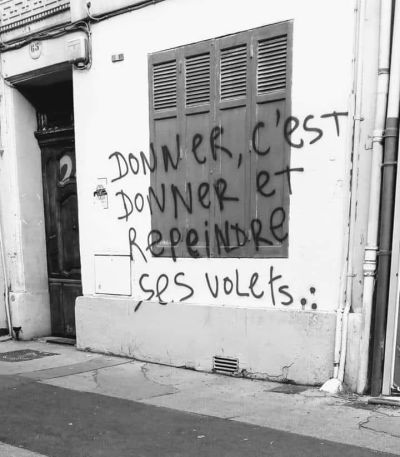 DONNER, C'EST
DONNER ET
REPEINDRE
SES VOLETS..: